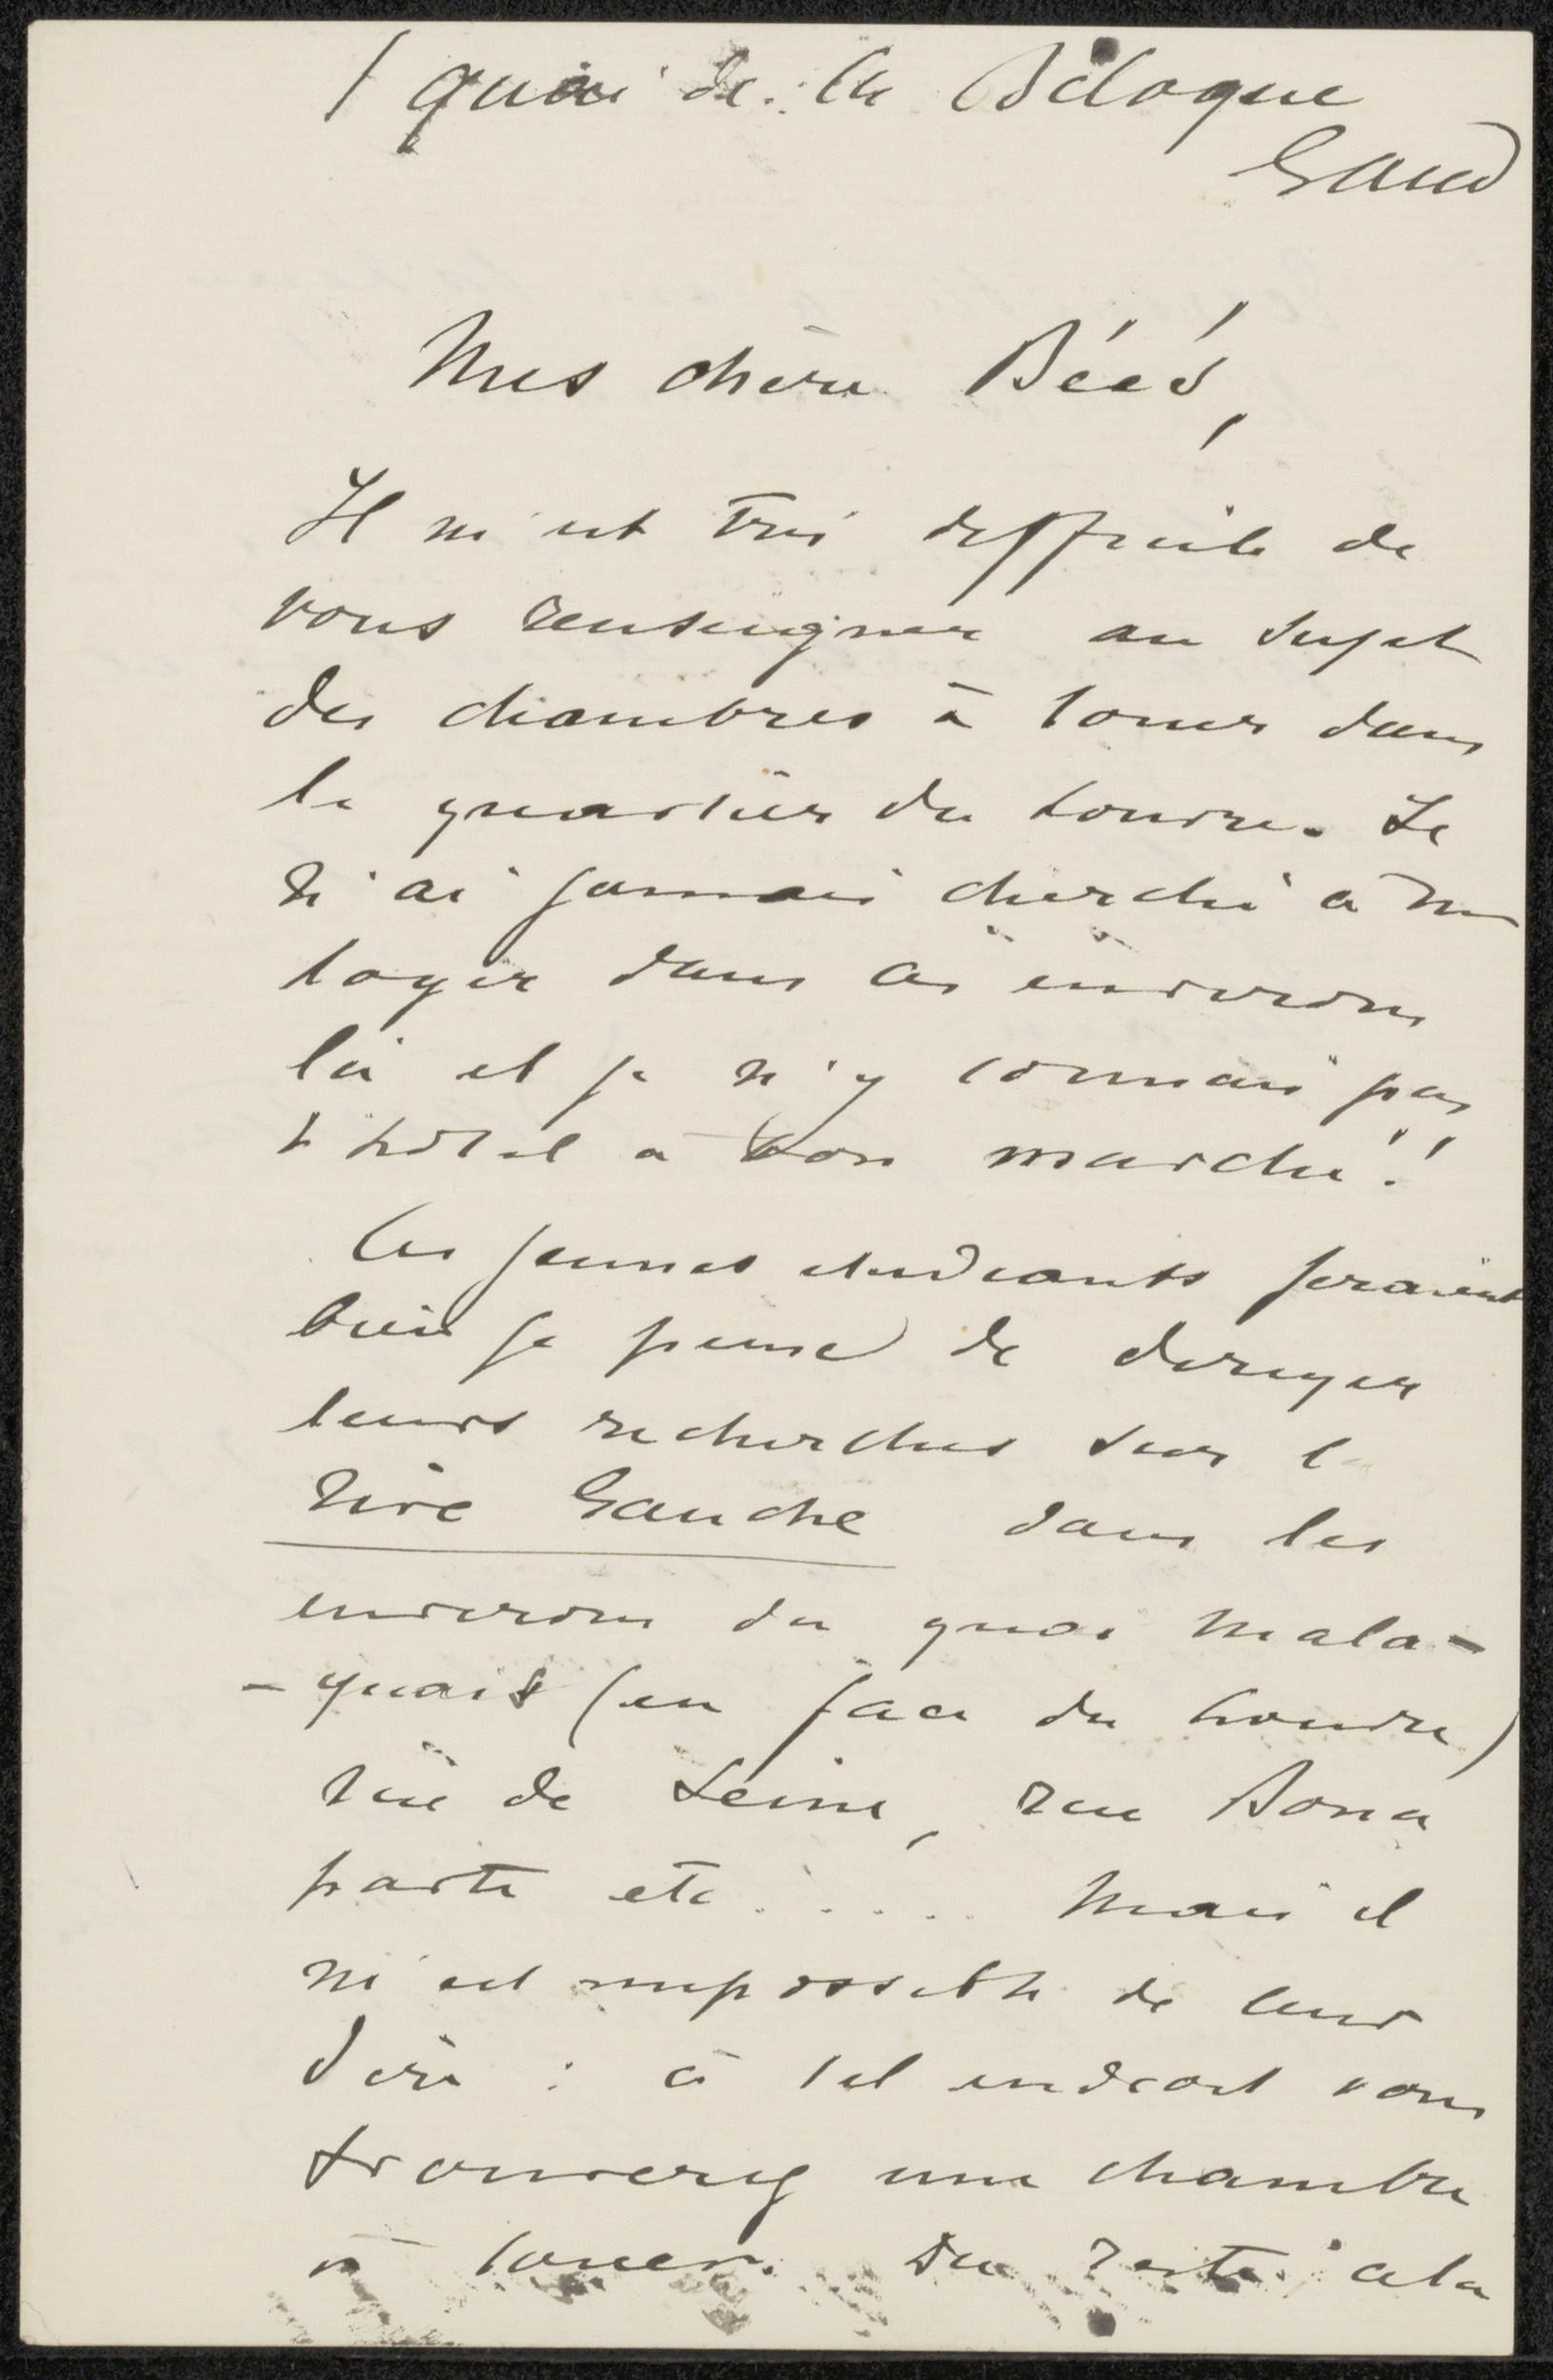 1 quai de la Biloque
Gand
Mes chers Béés,
Il m'est très difficile de
vous renseigner au sujet
des chambres à louer dans
le quartier du Louvre. Je
n'ai jamais cherché à me
loger dans ces environs
là et je n'y connais pas
d'hôtel à bon marché!
Ces jeunes étudiants feraient
bien je pense de diriger
leurs recherches sur la
rive Gauche dans les
environs du quai Mala-
-quais (en face du Louvre)
rue de Seine, rue Bona
parte etc..... Mais il
m'est impossible de leur
dire : à tel endroit vous
trouverez une chambre
à louer. Du reste cela